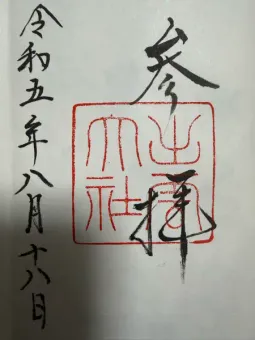 参拝
出雲
大社
令和五年八月十八日